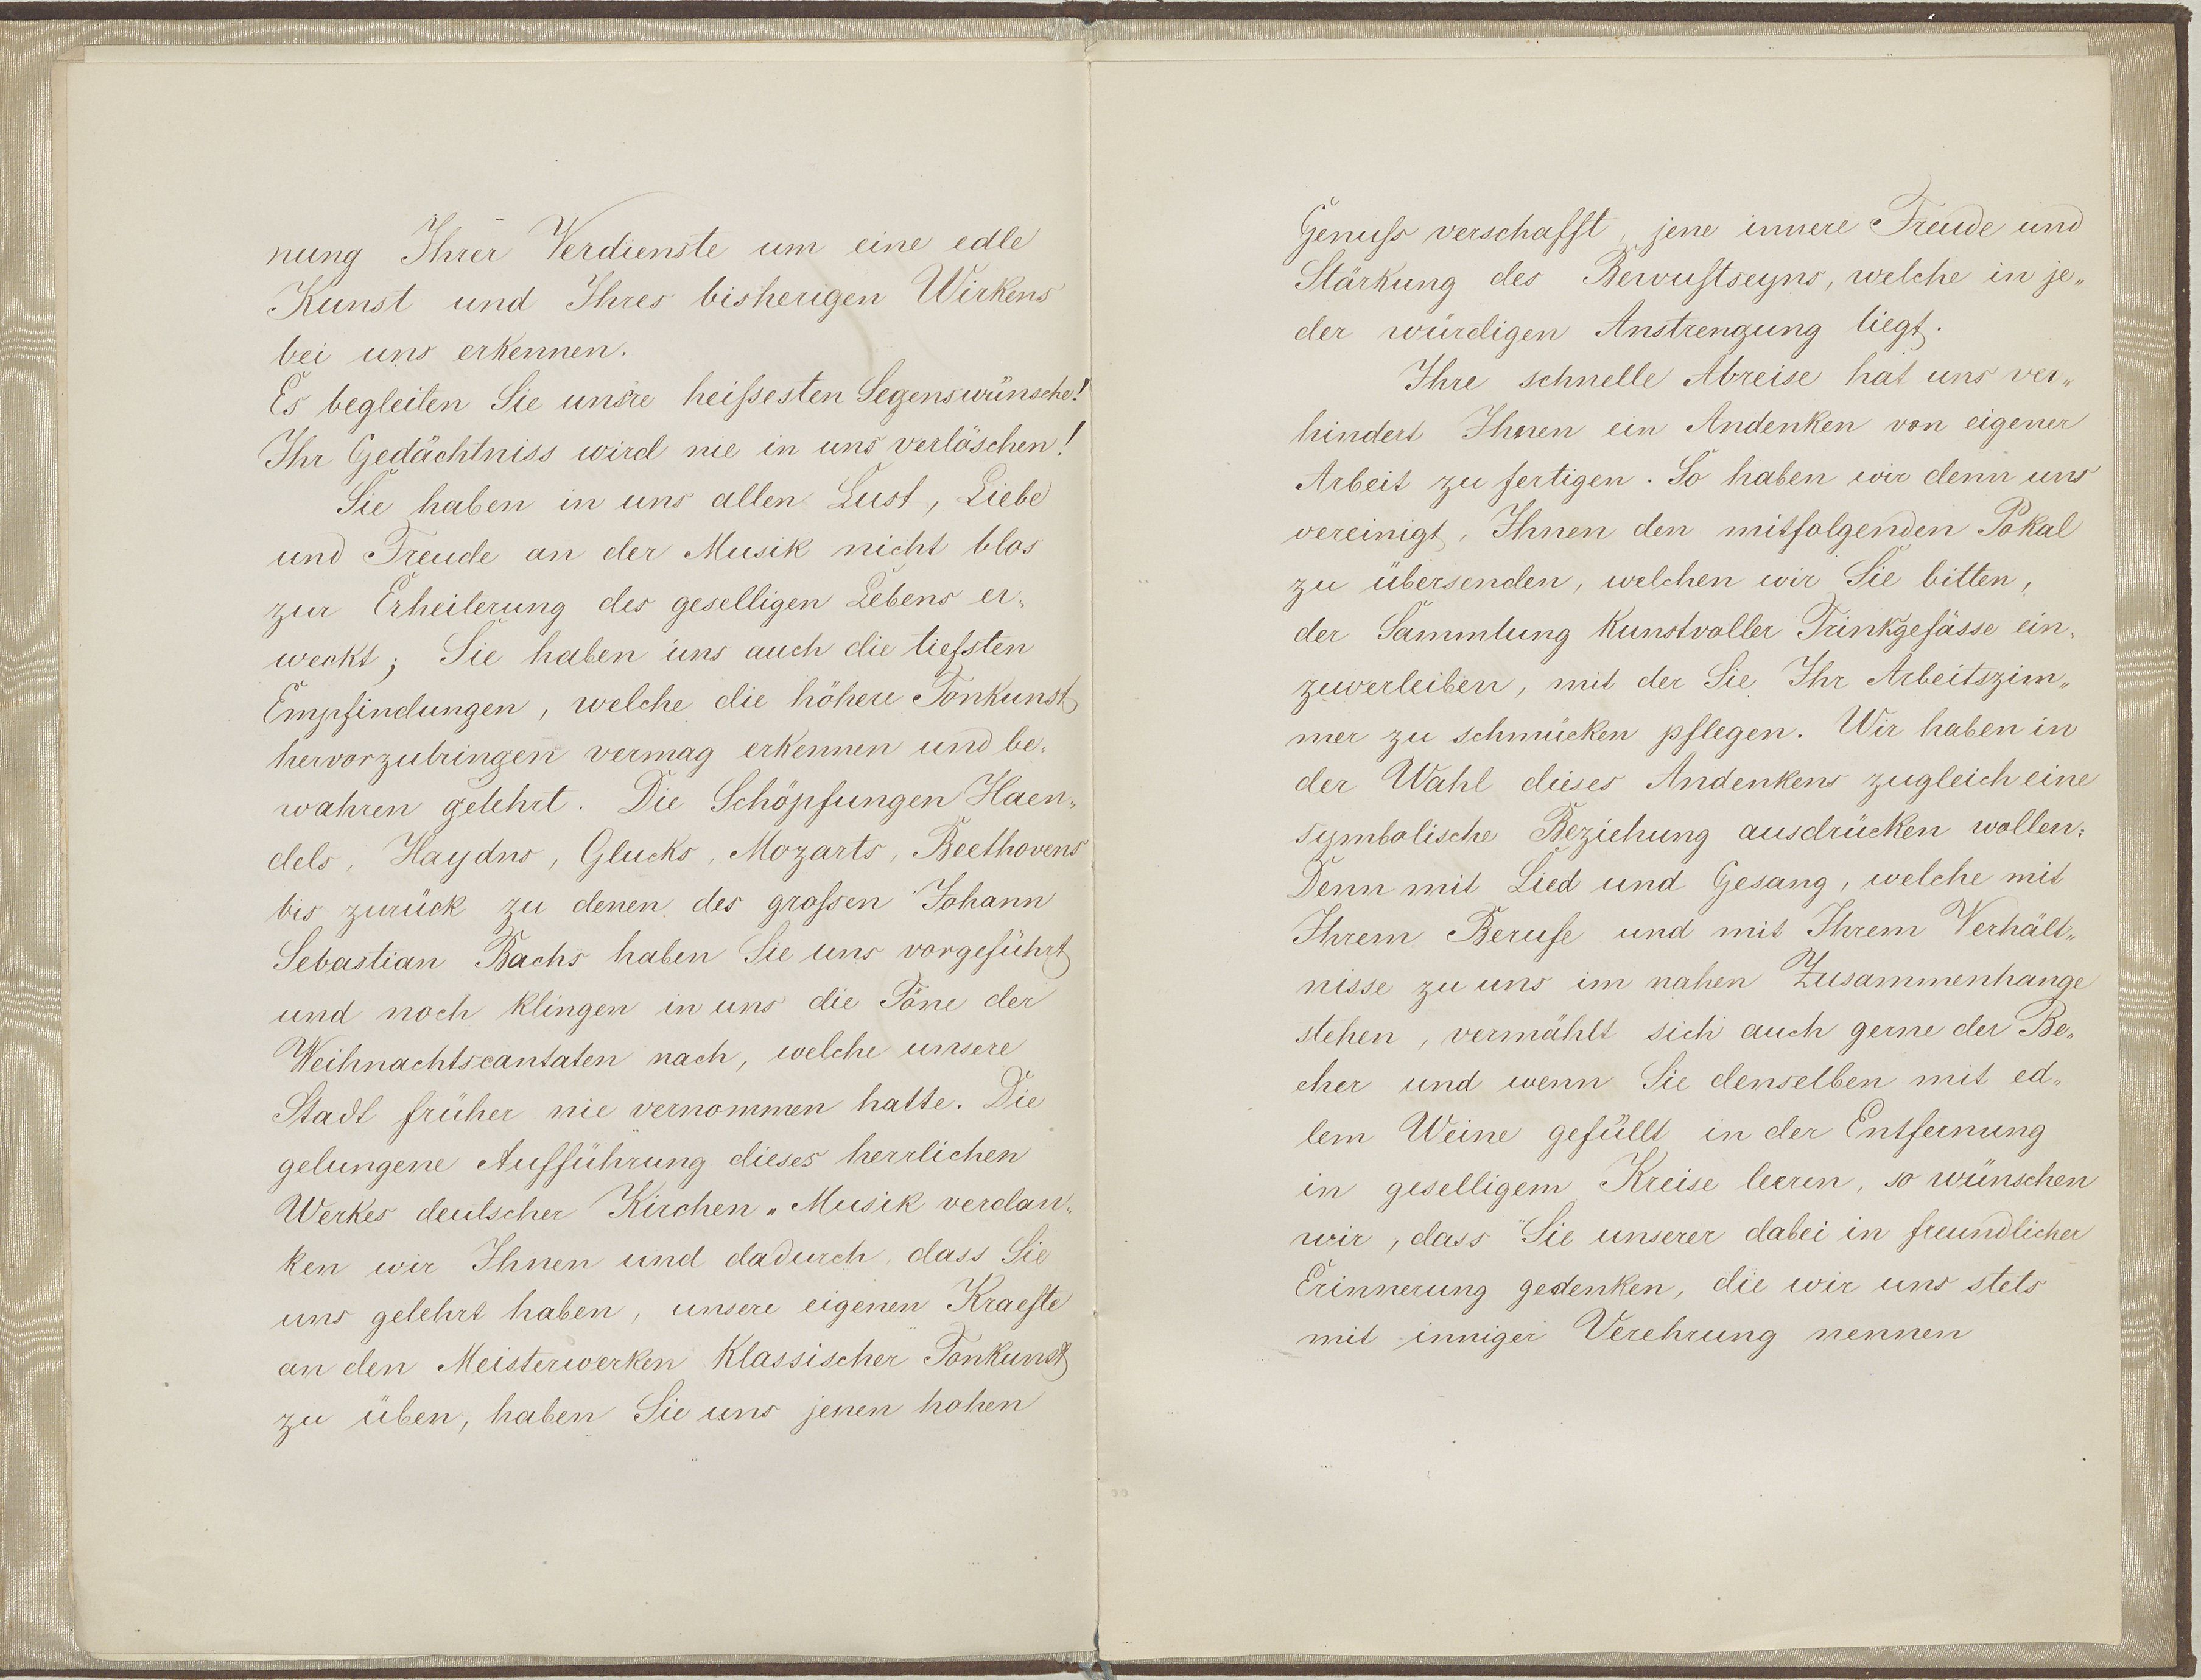 nung Ihrer Verdienste um eine edle
Kunst und Ihres bisherigen Wirkens
bei uns erkennen.
Es begleiten Sie unsre heißesten Segenswünsche!
Ihr Gedächtniss wird nie in uns verlöschen!
Sie haben in uns allen Lust, Liebe
und Freude an der Musik nicht blos
zur Erheiterung des geselligen Lebens er-
weckt; Sie haben uns auch die tiefsten
Empfindungen, welche die höhere Tonkunst
hervorzubringen vermag erkennen und be-
wahren gelehrt. Die Schöpfungen Haen-
dels, Haydns, Glucks, Mozarts, Beethovens
bis zurück zu denen des großen Johann
Sebastian Bachs haben Sie uns vorgeführt
und noch klingen in uns die Töne der
Weihnachtscantaten nach, welche unsere
Stadt früher nie vernommen hatte. Die
gelungene Aufführung dieses herrlichen
Werkes deutscher Kirchen„Musik verdan-
ken wir Ihnen und dadurch, dass Sie
uns gelehrt haben, unsere eigenen Kraefte
an den Meisterwerken klassischer Tonkunst
zu üben, haben Sie uns jenen hohen
Genuß verschafft, jene innere Freude und
Stärkung des Bewußtseyns, welche in je„
der würdigen Anstrengung liegt.
Ihre schnelle Abreise hat uns ver„
hindert Ihnen ein Andenken von eigener
Arbeit zu fertigen. So haben wir denn uns
vereinigt, Ihnen den mitfolgenden Pokal
zu übersenden, welchen wir Sie bitten,
der Sammlung kunstvoller Trinkgefässe ein-
zuverleiben, mit der Sie Ihr Arbeitszim„
mer zu schmücken pflegen. Wir haben in
der Wahl dieses Andenkens zugleich eine
symbolische Beziehung ausdrücken wollen;
Denn mit Lied und Gesang, welche mit
Ihrem Berufe und mit Ihrem Verhält„
nisse zu uns im nahen Zusammenhange
stehen, vermählt sich auch gerne der Be„
cher und wenn Sie denselben mit ed„
lem Weine gefüllt in der Entfernung
in geselligem Kreise leeren, so wünschen
wir, dass Sie unserer dabei in freundlicher
Erinnerung gedenken, die wir uns stets
mit inniger Verehrung nennen